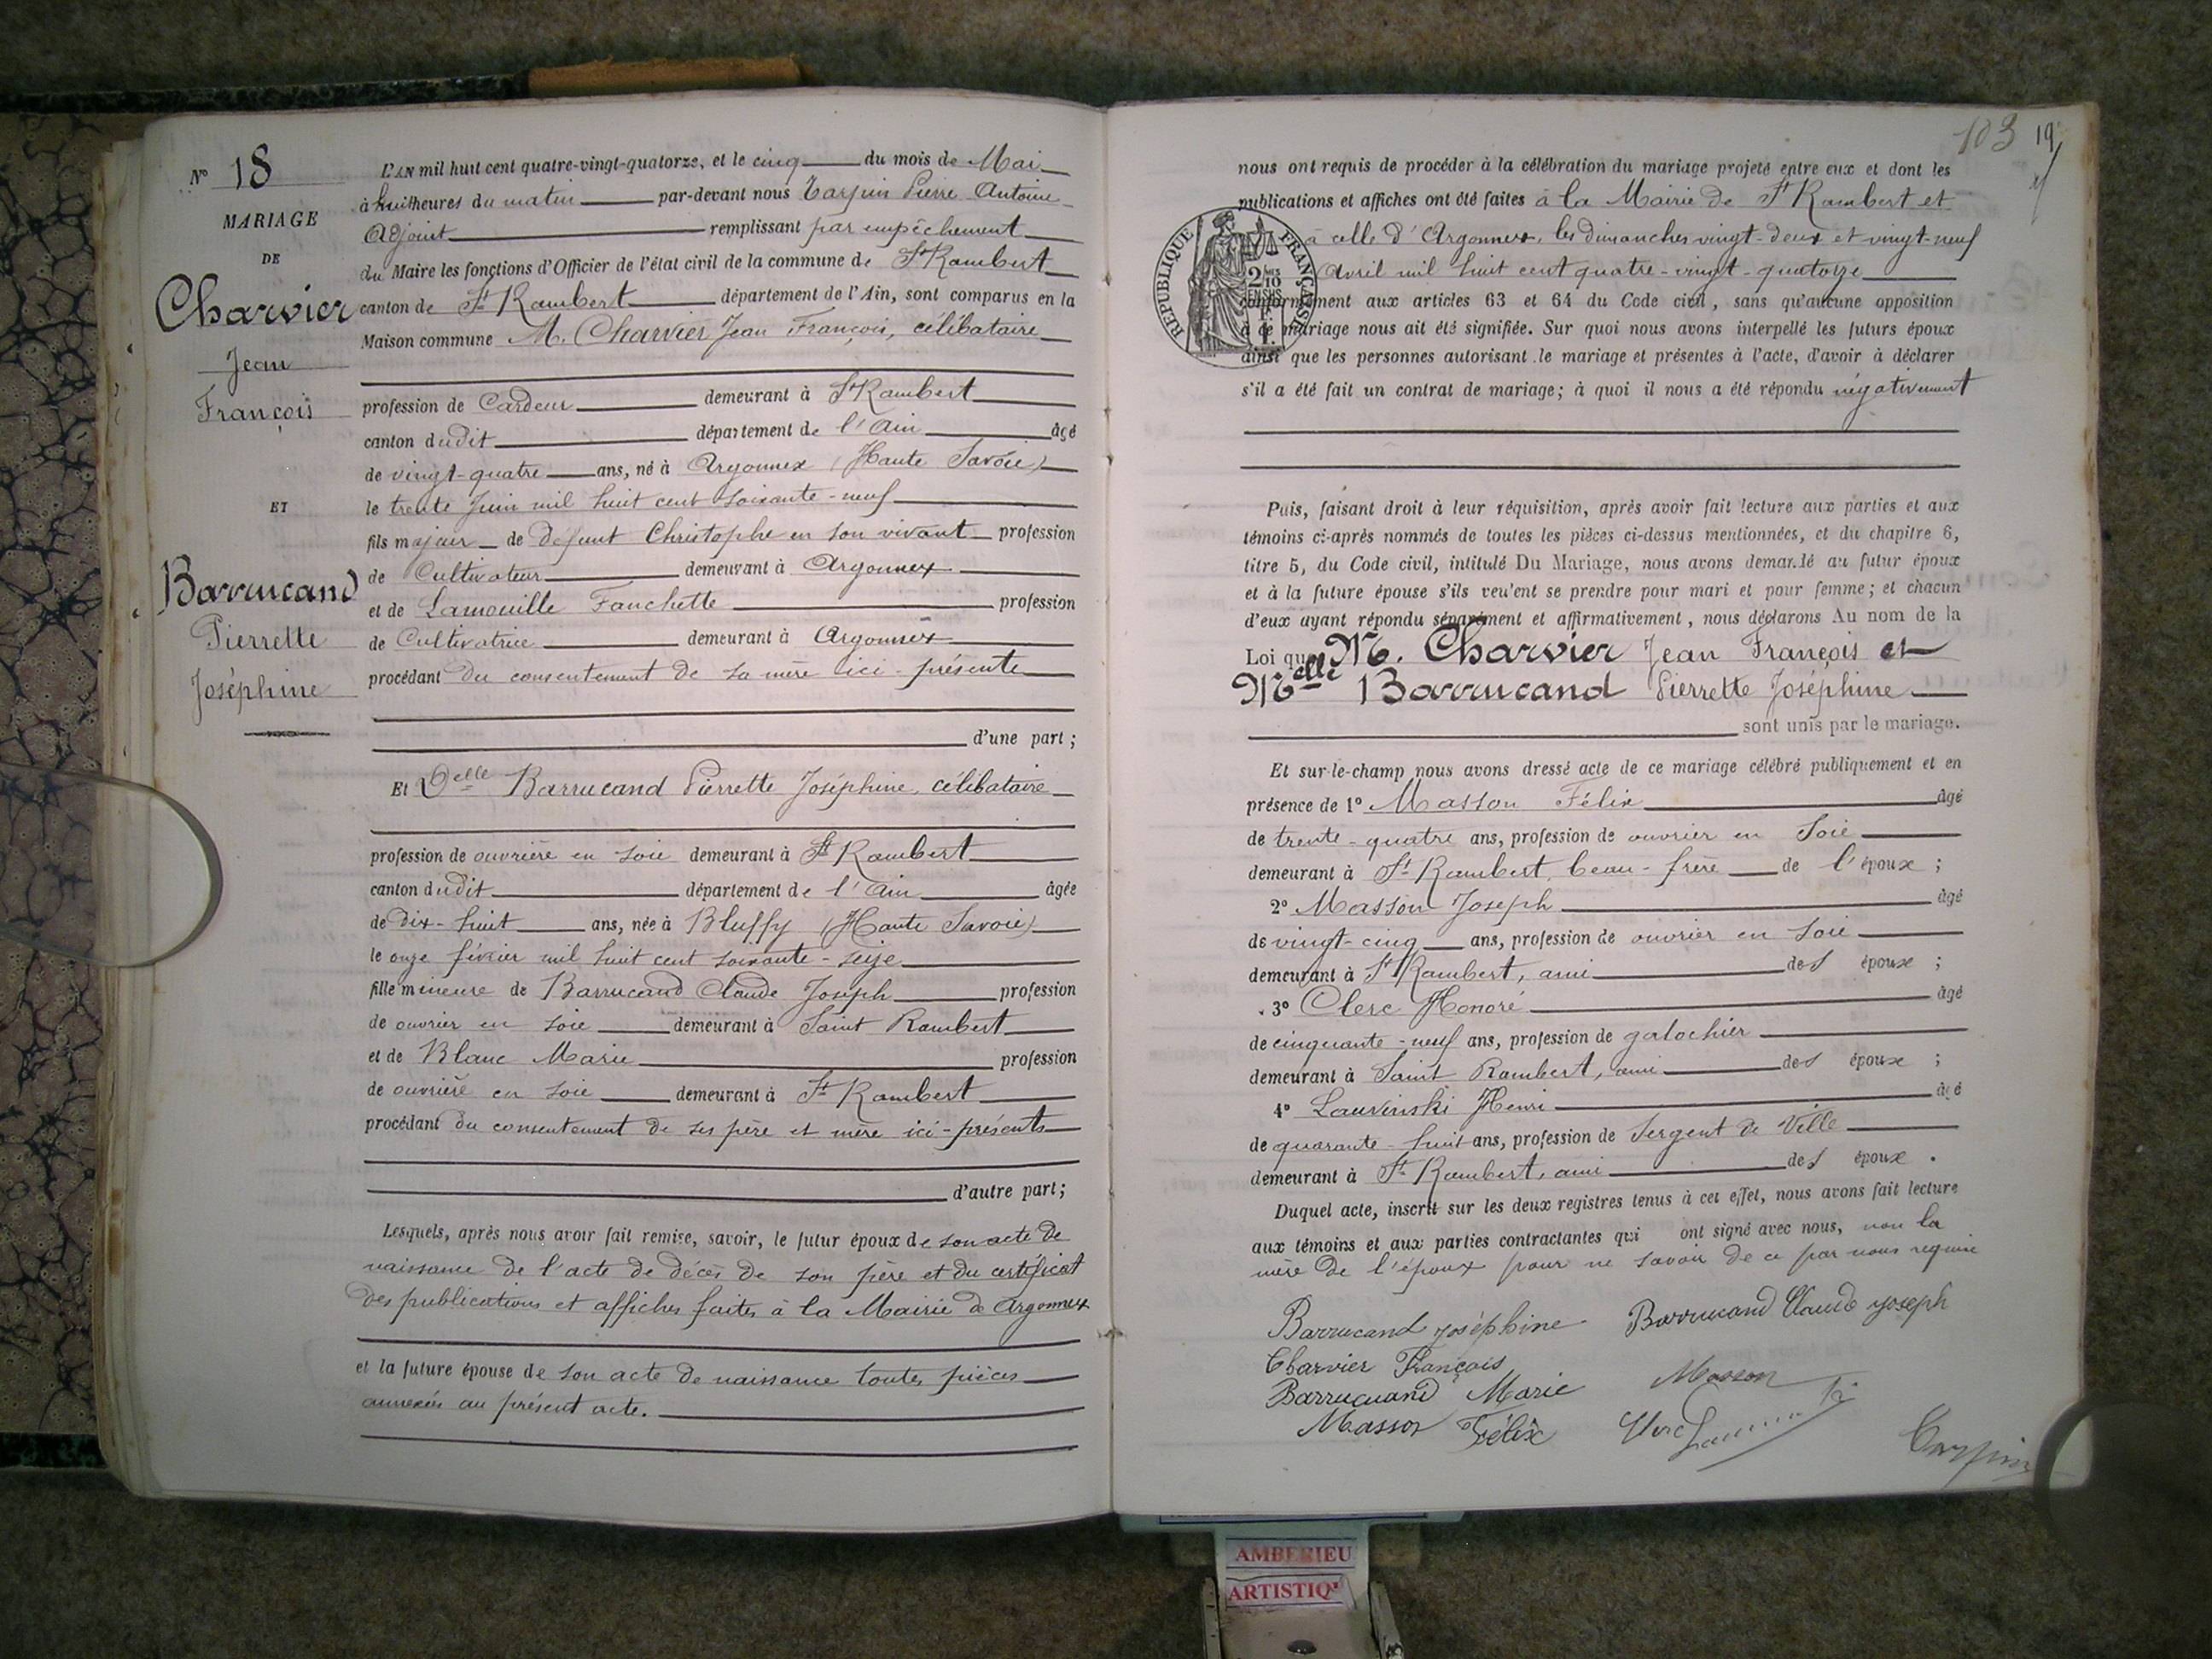 N° 18
MARIAGE
DE
Charvier
Jean
François
ET
Barrucand
Pierrette
Joséphine
L'AN mil huit cent quatre-vingt-quatorze, et le cinq du mois de Mai
à huit heures du matin par-devant nous Tarpin Pierre Antoine
Adjoint remplissant par empêchement
du Maire les fonctions d'Officier de l'état civil de la commune de St Rambert
canton de St Rambert département de l'Ain, sont comparus en la
Maison commune M. Charvier Jean François, célibataire
profession de Cardeur demeurant à St Rambert
canton dudit département de l'Ain âgé
de vingt-quatre ans, né à Argonnex (Haute Savoie)
le trente Juin mil huit cent soixante-neuf
fils majeur de défunt Christophe en son vivant profession
de Cultivateur demeurant à Argonnex
et de Lamouille Fanchette profession
de Cultivatrice demeurant à Argonnex
procédant du consentement de sa mère ici-présente
d'une part ;
Et Delle Barrucand Pierrette Joséphine, célibataire
profession de ouvrière en soie demeurant à St Rambert
canton dudit département de l'Ain âgée
de dix-huit ans, née à Bluffy (Haute Savoie)
le onze février mil huit cent soixante-seize
fille mineure de Barrucand Claude Joseph profession
de ouvrier en soie demeurant à Saint Rambert
et de Blanc Marie profession
de ouvrière en soie demeurant à St Rambert
procédant du consentement de ses père et mère ici-présents
d'autre part ;
Lesquels, après nous avoir fait remise, savoir, le futur époux de son acte de
naissance de l'acte de décès de son père et du certificat
des publications et affiches faites à la Mairie de Argonnex
et la future épouse de son acte de naissance toutes pièces
annexées au présent acte.
103 19
nous ont requis de procéder à la célébration du mariage projeté entre eux et dont les
publications et affiches ont été faites à la Mairie de St Rambert et
à celle d'Argonnex, les dimanches vingt-deux et vingt-neuf
Avril mil huit cent quatre-vingt-quatorze
conformément aux articles 63 et 64 du Code civil, sans qu'aucune opposition
à ce mariage nous ait été signifiée. Sur quoi nous avons interpellé les futurs époux
ainsi que les personnes autorisant le mariage et présentes à l'acte, d'avoir à déclarer
s'il a été fait un contrat de mariage ; à quoi il nous a été répondu négativement
RÉPUBLIQUE FRANÇAISE
2/10
EN SUS
Puis, faisant droit à leur réquisition, après avoir fait lecture aux parties et aux
témoins ci-après nommés de toutes les pièces ci-dessus mentionnées, et du chapitre 6,
titre 5, du Code civil, intitulé Du Mariage, nous avons demandé au futur époux
et à la future épouse s'ils veulent se prendre pour mari et pour femme ; et chacun
d'eux ayant répondu séparément et affirmativement, nous déclarons Au nom de la
Loi que M. Charvier Jean François et
Melle Barrucand Pierrette Joséphine
sont unis par le mariage.
Et sur-le-champ nous avons dressé acte de ce mariage célébré publiquement et en
présence de 1° Masson Félix âgé
de trente-quatre ans, profession de ouvrier en soie
demeurant à St Rambert, beau-frère de l'époux ;
2° Masson Joseph âgé
de vingt-cinq ans, profession de ouvrier en soie
demeurant à St Rambert, ami des époux ;
3° Clerc Honoré âgé
de cinquante-neuf ans, profession de galochier
demeurant à Saint Rambert, ami des époux ;
4° Lauvinski Henri âgé
de quarante-huit ans, profession de Sergent de Ville
demeurant à St Rambert, ami des époux.
Duquel acte, inscrit sur les deux registres tenus à cet effet, nous avons fait lecture
aux témoins et aux parties contractantes qui ont signé avec nous, non la
mère de l'époux pour ne savoir de ce par nous requise
Barrucand joséphine Barrucand Claude joseph
Charvier François
Barrucand Marie Masson
Masson Félix Clerc
Tarpin
AMBERIEU
ARTISTIQ'